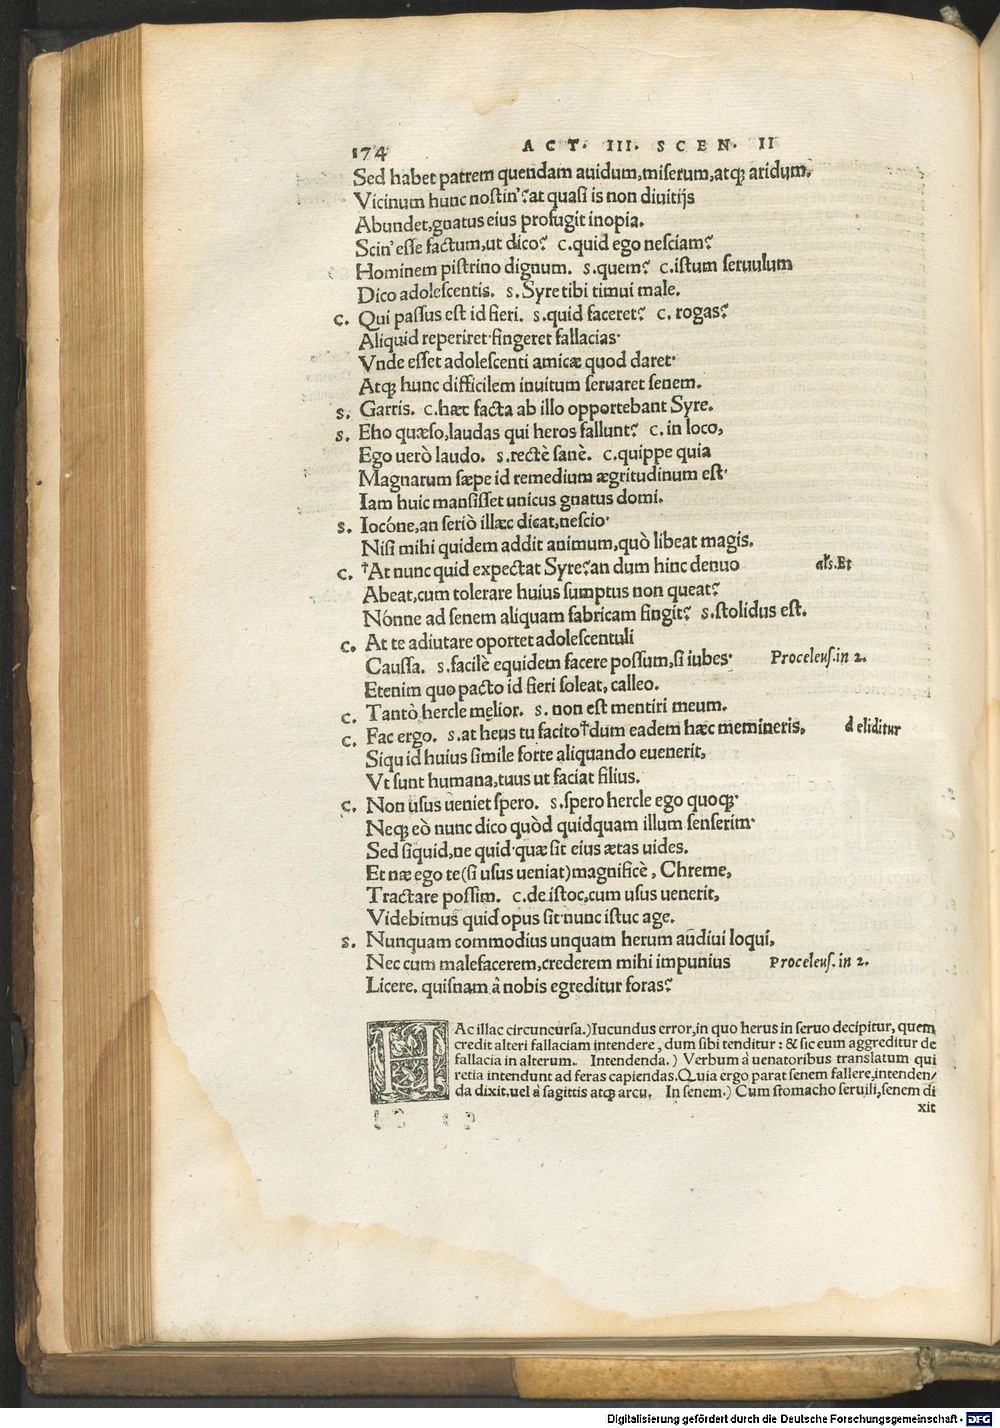 174 ACT. III. SCEN. II
Sed habet patrem quendam auidum,miserum,atqꝫ aridum.
Vicinum hunc nostin'?at quasi is non diuitijs
Abundet,gnatus eius profugit inopia.
Scin' esse factum,ut dico? C.quid ego nesciam?
Hominem pistrino dignum. S.quem? C.istum seruulum
Dico adolescentis. S.Syre tibi timui male.
C. Qui passus est id fieri. S.quid faceret? C. rogas?
Aliquid reperiret·fingeret fallacias·
Vnde esset adolescenti amicæ quod daret·
Atqꝫ hunc difficilem inuitum seruaret senem.
S. Garris. C.hæc facta ab illo opportebant Syre.
S. Eho quæso,laudas qui heros fallunt? C.in loco,
Ego uerò laudo. S.rectè sanè. C.quippe quia
Magnarum sæpe id remedium ægritudinum est·
Iam huic mansisset unicus gnatus domi.
S. Iocóne,an seriò illæc dicat,nescio·
Nisi mihi quidem addit animum,quò libeat magis.
C. †At nunc quid expectat Syre?an dum hinc denuo als.Et
Abeat,cum tolerare huius sumptus non queat?
Nónne ad senem aliquam fabricam fingit? S.stolidus est.
C. At te adiutare oportet adolescentuli
Caussa. S.facilè equidem facere possum,si iubes· Proceleus.in 2.
Etenim quo pacto id fieri soleat,calleo.
C. Tantò hercle melior. S. non est mentiri meum.
C. Fac ergo. S.at heus tu facito†dum eadem hæc memineris, d eliditur
Siquid huius simile forte aliquando euenerit,
Vt sunt humana,tuus ut faciat filius.
C. Non usus ueniet spero. S.spero hercle ego quoqꝫ·
Neqꝫ eò nunc dico quòd quidquam illum senserim·
Sed siquid,ne quid·quæ sit eius ætas uides.
Et næ ego te(si usus ueniat)magnificè, Chreme,
Tractare possim. C.de istoc,cum usus uenerit,
Videbimus quid opus sit·nunc istuc age.
S. Nunquam commodius unquam herum audiui loqui,
Nec cum malefacerem,crederem mihi impunius Proceleus. in 2.
Licere. quisnam â nobis egreditur foras?
HAc illac circuncursa.)Iucundus error,in quo herus in seruo decipitur, quem
credit alteri fallaciam intendere, dum sibi tenditur: & sic eum aggreditur de
fallacia in alterum. Intendenda.) Verbum à uenatoribus translatum qui
retia intendunt ad feras capiendas.Quia ergo parat senem fallere,intenden/
da dixit.uel à sagittis atqꝫ arcu. In senem.) Cum stomacho seruili,senem di
xit
Digitalisierung gefördert durch die Deutsche Forschungsgemeinschaft - DFG